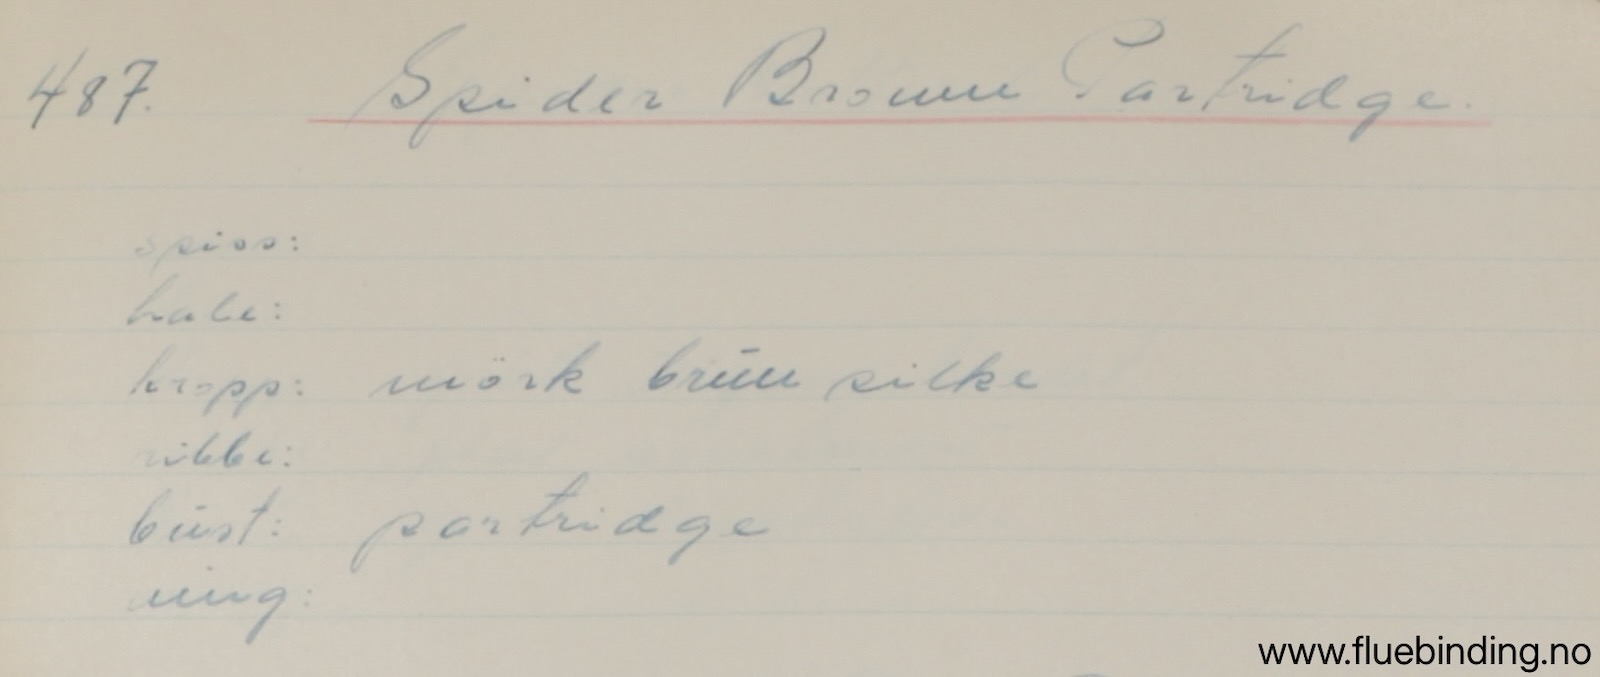 487. Spider Brown Partridge.
spiss:
hale:
kropp: mörk brūn silke
ribbe:
būst: partridge
ving:
www.fluebinding.no